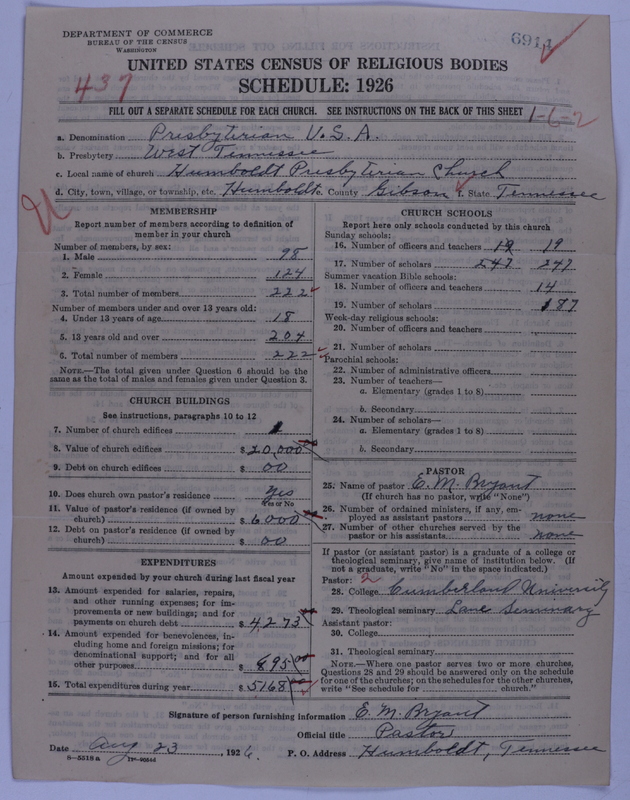 DEPARTMENT OF COMMERCE
BUREAU OF THE CENSUS
WASHINGTON
6911
UNITED STATES CENSUS OF RELIGIOUS BODIES
SCHEDULE: 1926
437
FILL OUT A SEPARATE SCHEDULE FOR EACH CHURCH. SEE INSTRUCTIONS ON THE BACK OF THIS SHEET
1-6-2
a. Denomination Presbyterian U.S.A.
b. Presbytery West Tennessee
c. Local name of church Humboldt Presbyterian Church
d. City, town, village, or township, etc. Humboldt e. County Gibson f. State Tennessee
MEMBERSHIP
Report number of members according to definition of
member in your church
Number of members, by sex:
1. Male 98
2. Female 124
3. Total number of members 222
Number of members under and over 13 years old:
4. Under 13 years of age 18
5. 13 years old and over 204
6. Total number of members 222
NOTE.—The total given under Question 6 should be the
same as the total of males and females given under Question 3.
CHURCH BUILDINGS
See instructions, paragraphs 10 to 12
7. Number of church edifices 1
8. Value of church edifices $ 20,000
9. Debt on church edifices $ 00
10. Does church own pastor's residence Yes
Yes or No
11. Value of pastor's residence (if owned by
church) $ 6000
12. Debt on pastor's residence (if owned by
church) $ 00
EXPENDITURES
Amount expended by your church during last fiscal year
13. Amount expended for salaries, repairs,
and other running expenses; for im-
provements or new buildings; and for
payments on church debt $ 4273
14. Amount expended for benevolences, in-
cluding home and foreign missions; for
denominational support; and for all
other purposes $ 895 00
15. Total expenditures during year $ 5168
CHURCH SCHOOLS
Report here only schools conducted by this church
Sunday schools:
16. Number of officers and teachers 19 19
17. Number of scholars 247 247
Summer vacation Bible schools:
18. Number of officers and teachers 14
19. Number of scholars 87
Week-day religious schools:
20. Number of officers and teachers
21. Number of scholars
Parochial schools:
22. Number of administrative officers
23. Number of teachers—
a. Elementary (grades 1 to 8)
b. Secondary
24. Number of scholars—
a. Elementary (grades 1 to 8)
b. Secondary
PASTOR
25. Name of pastor E. M. Bryant
(If church has no pastor, write "None")
26. Number of ordained ministers, if any, em-
ployed as assistant pastors none
27. Number of other churches served by the
pastor or his assistants none
If pastor (or assistant pastor) is a graduate of a college or
theological seminary, give name of institution below. (If
not a graduate, write "No" in the space indicated.)
Pastor: 2
28. College Cumberland University
29. Theological seminary Lane Seminary
Assistant pastor:
30. College
31. Theological seminary
NOTE.—Where one pastor serves two or more churches,
Questions 28 and 29 should be answered only on the schedule
for one of the churches; on the schedules for the other churches,
write "See schedule for church."
Signature of person furnishing information E. M. Bryant
Official title Pastor
Date Aug 23, 1926. P. O. Address Humboldt, Tennessee
8—5518a